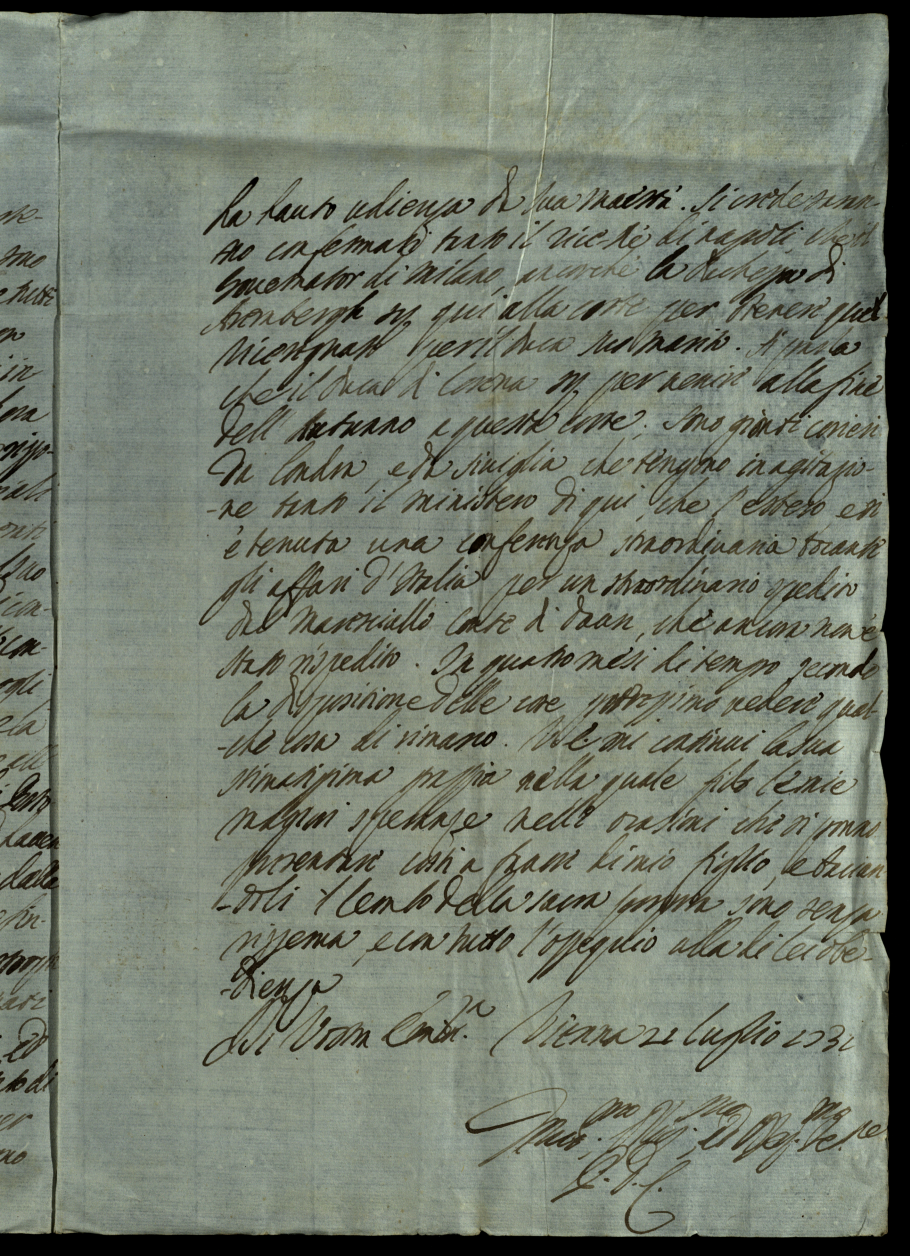 ha hauto udienza da Sua Maestà. Si crede saran-
no confermati tanto il vicerè di Napoli che il
Governator di Milano, ancorchè la duchessa di
Arembergh sij qui alla corte per ottenere quel
Viceregnato per il duca suo marito. Si parla
che il duca di Lorena sij per venire alla fine
dell'Autunno a questa corte. Sono gionti corrieri
da Londra, e da Siviglia che tengono in agitazio-
-ne tanto il ministero di qui, che l'estero, e si
è tenuta una conferenza straordinaria tocante
gli affari d'Italia per un straordinario spedito
dal Maresciallo Conte di Daun, che ancora non è
stato rispedito. In quatro mesi di tempo secondo
la disposizione delle cose potressimo vedere qual-
-che cosa di rimarco. V.E. mi continui la sua
stimatissima grazia nella quale fido le mie
magiori speranze nelle ocasioni che si ponno
presentare costì a favore di mio figlio, e bacian-
-doli il lembo della sacra porpora sono senza
riserva, e con tutto l'ossequio alla di lei obe-
-dienza
Di Vostra Emin.za Vienna 21 Luglio 1731